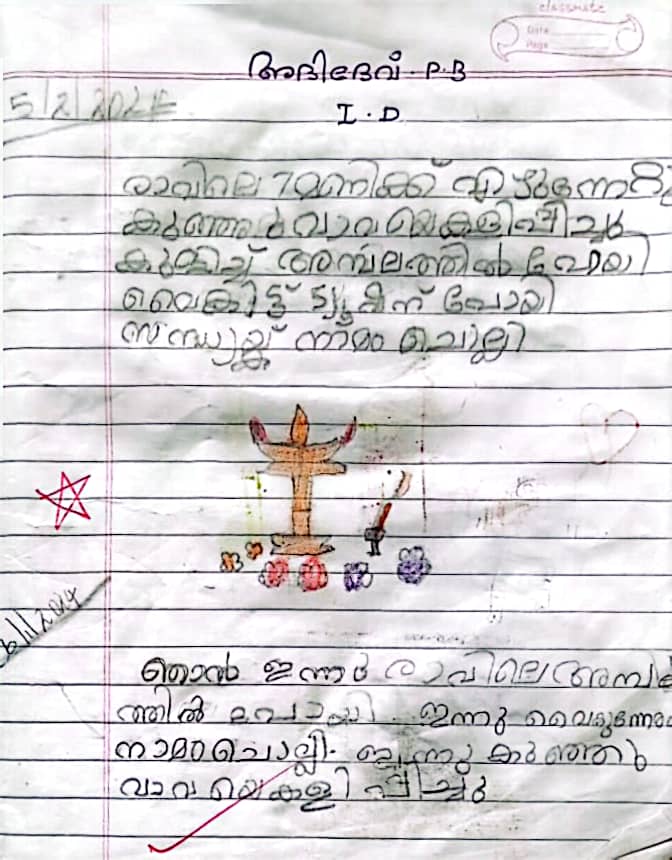 classmate
Date
Page
അദിദേവ്. P. B
I. D
5/2/2024
രാവിലെ 7മണിക്ക് എഴുന്നേറ്റു
കുഞ്ഞുവാവയെകളിപ്പിച്ചു
കുളിച്ച് അമ്പലത്തിൽ പോയി
വൈകിട്ട് ട്യൂഷന് പോയി
സന്ധ്യയ്ക്ക് നാമം ചൊല്ലി
ഞാൻ ഇന്ന് രാവിലെ അമ്പല
ത്തിൽ പോയി. ഇന്നു വൈകുന്നേരം
നാമംചൊല്ലി. ഇന്നു കുഞ്ഞു
വാവയെകളിപ്പിച്ചു